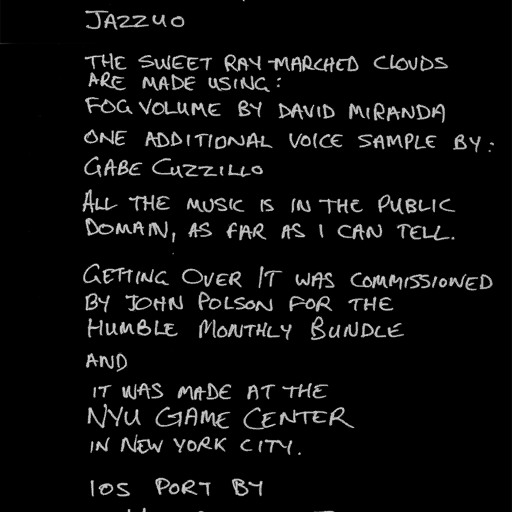 JAZZUO
THE SWEET RAY-MARCHED CLOUDS
ARE MADE USING:
FOG VOLUME BY DAVID MIRANDA
ONE ADDITIONAL VOICE SAMPLE BY:
GABE CUZZILLO
ALL THE MUSIC IS IN THE PUBLIC
DOMAIN, AS FAR AS I CAN TELL.
GETTING OVER IT WAS COMMISSIONED
BY JOHN POLSON FOR THE
HUMBLE MONTHLY BUNDLE
AND
IT WAS MADE AT THE
NYU GAME CENTER
IN NEW YORK CITY.
IOS PORT BY